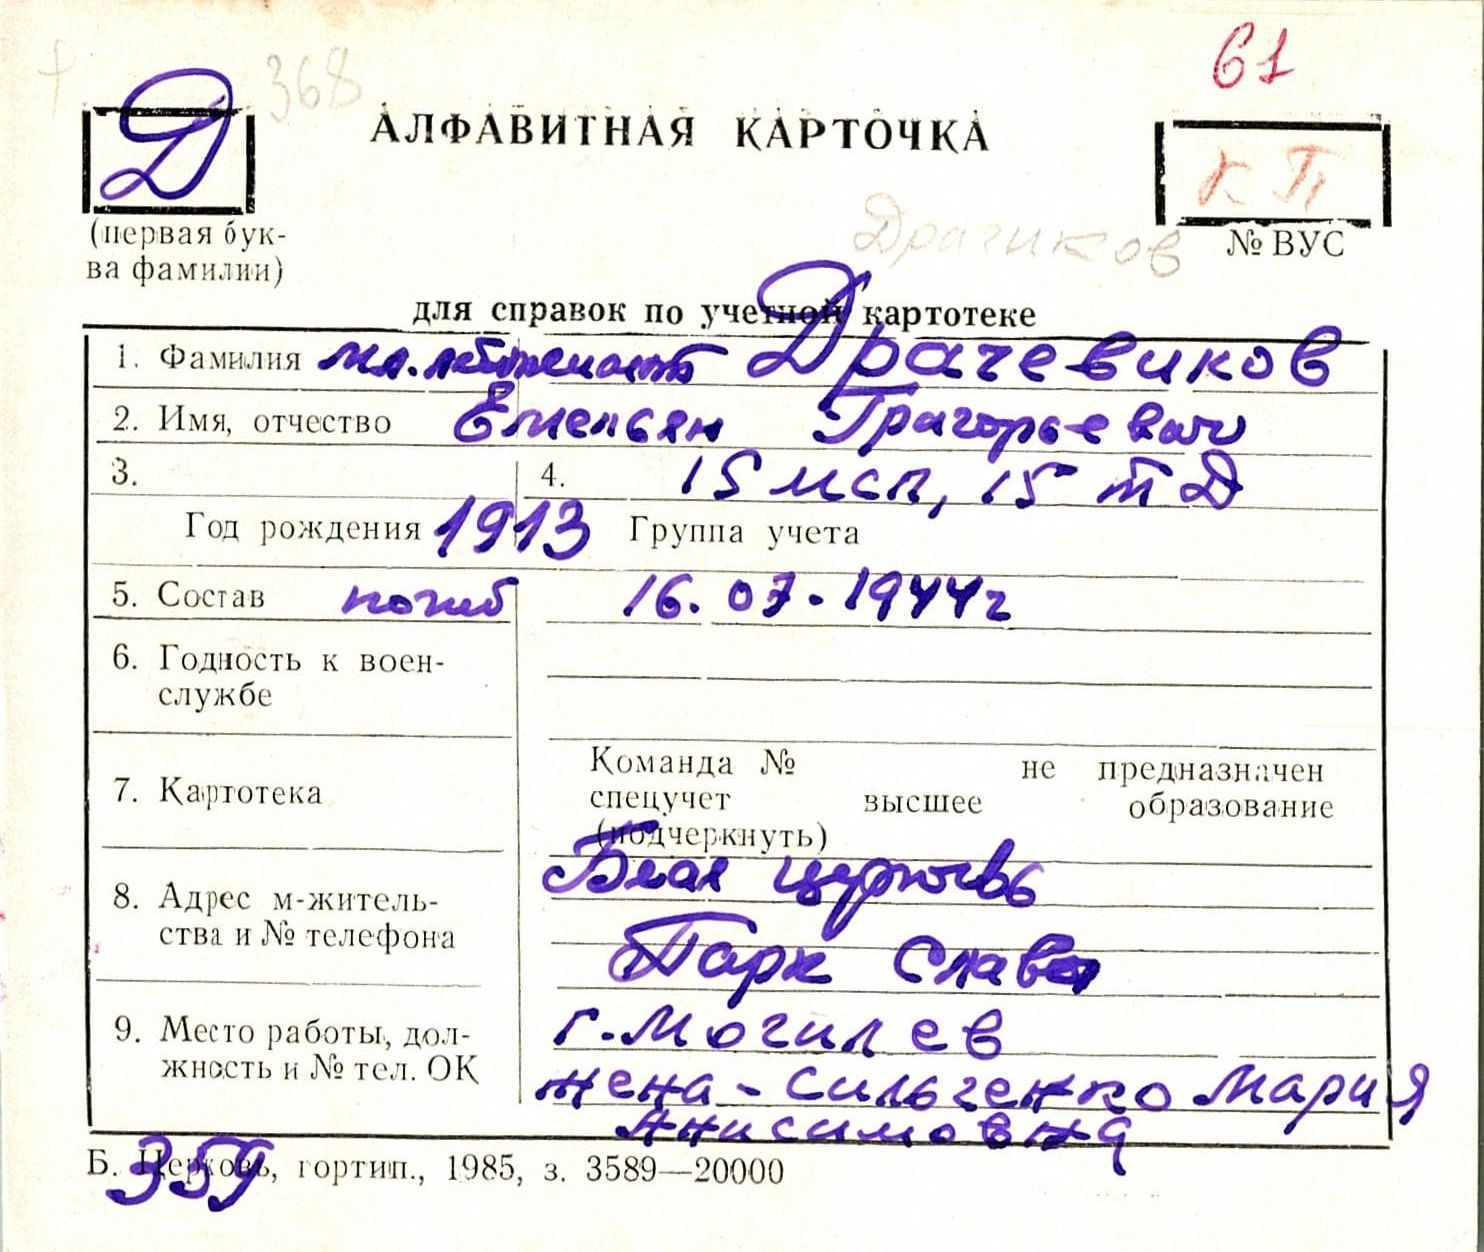 61
Д 368
АЛФАВИТНАЯ КАРТОЧКА
К П
(первая бук-
ва фамилии)
Драчиков
№ ВУС
для справок по учетной картотеке
1. Фамилия мл. лейтенант Драчевиков
2. Имя, отчество Емельян Грагорьевич
3. 4. 15 мсп, 15 тД
Год рождения 1913 Группа учета
5. Состав погиб 16.07.1944г
6. Годность к воен-
службе
7. Картотека
Команда № не предназначен
спецучет высшее образование
(подчеркнуть)
8. Адрес м-житель-
ства и № телефона
Белая церковь
Парк Славы
9. Место работы, дол-
жность и № тел. ОК
г. Могилев
жена - Сильченко Мария
Анисимовна
Б. Церковь, гортип., 1985, з. 3589—20000
359